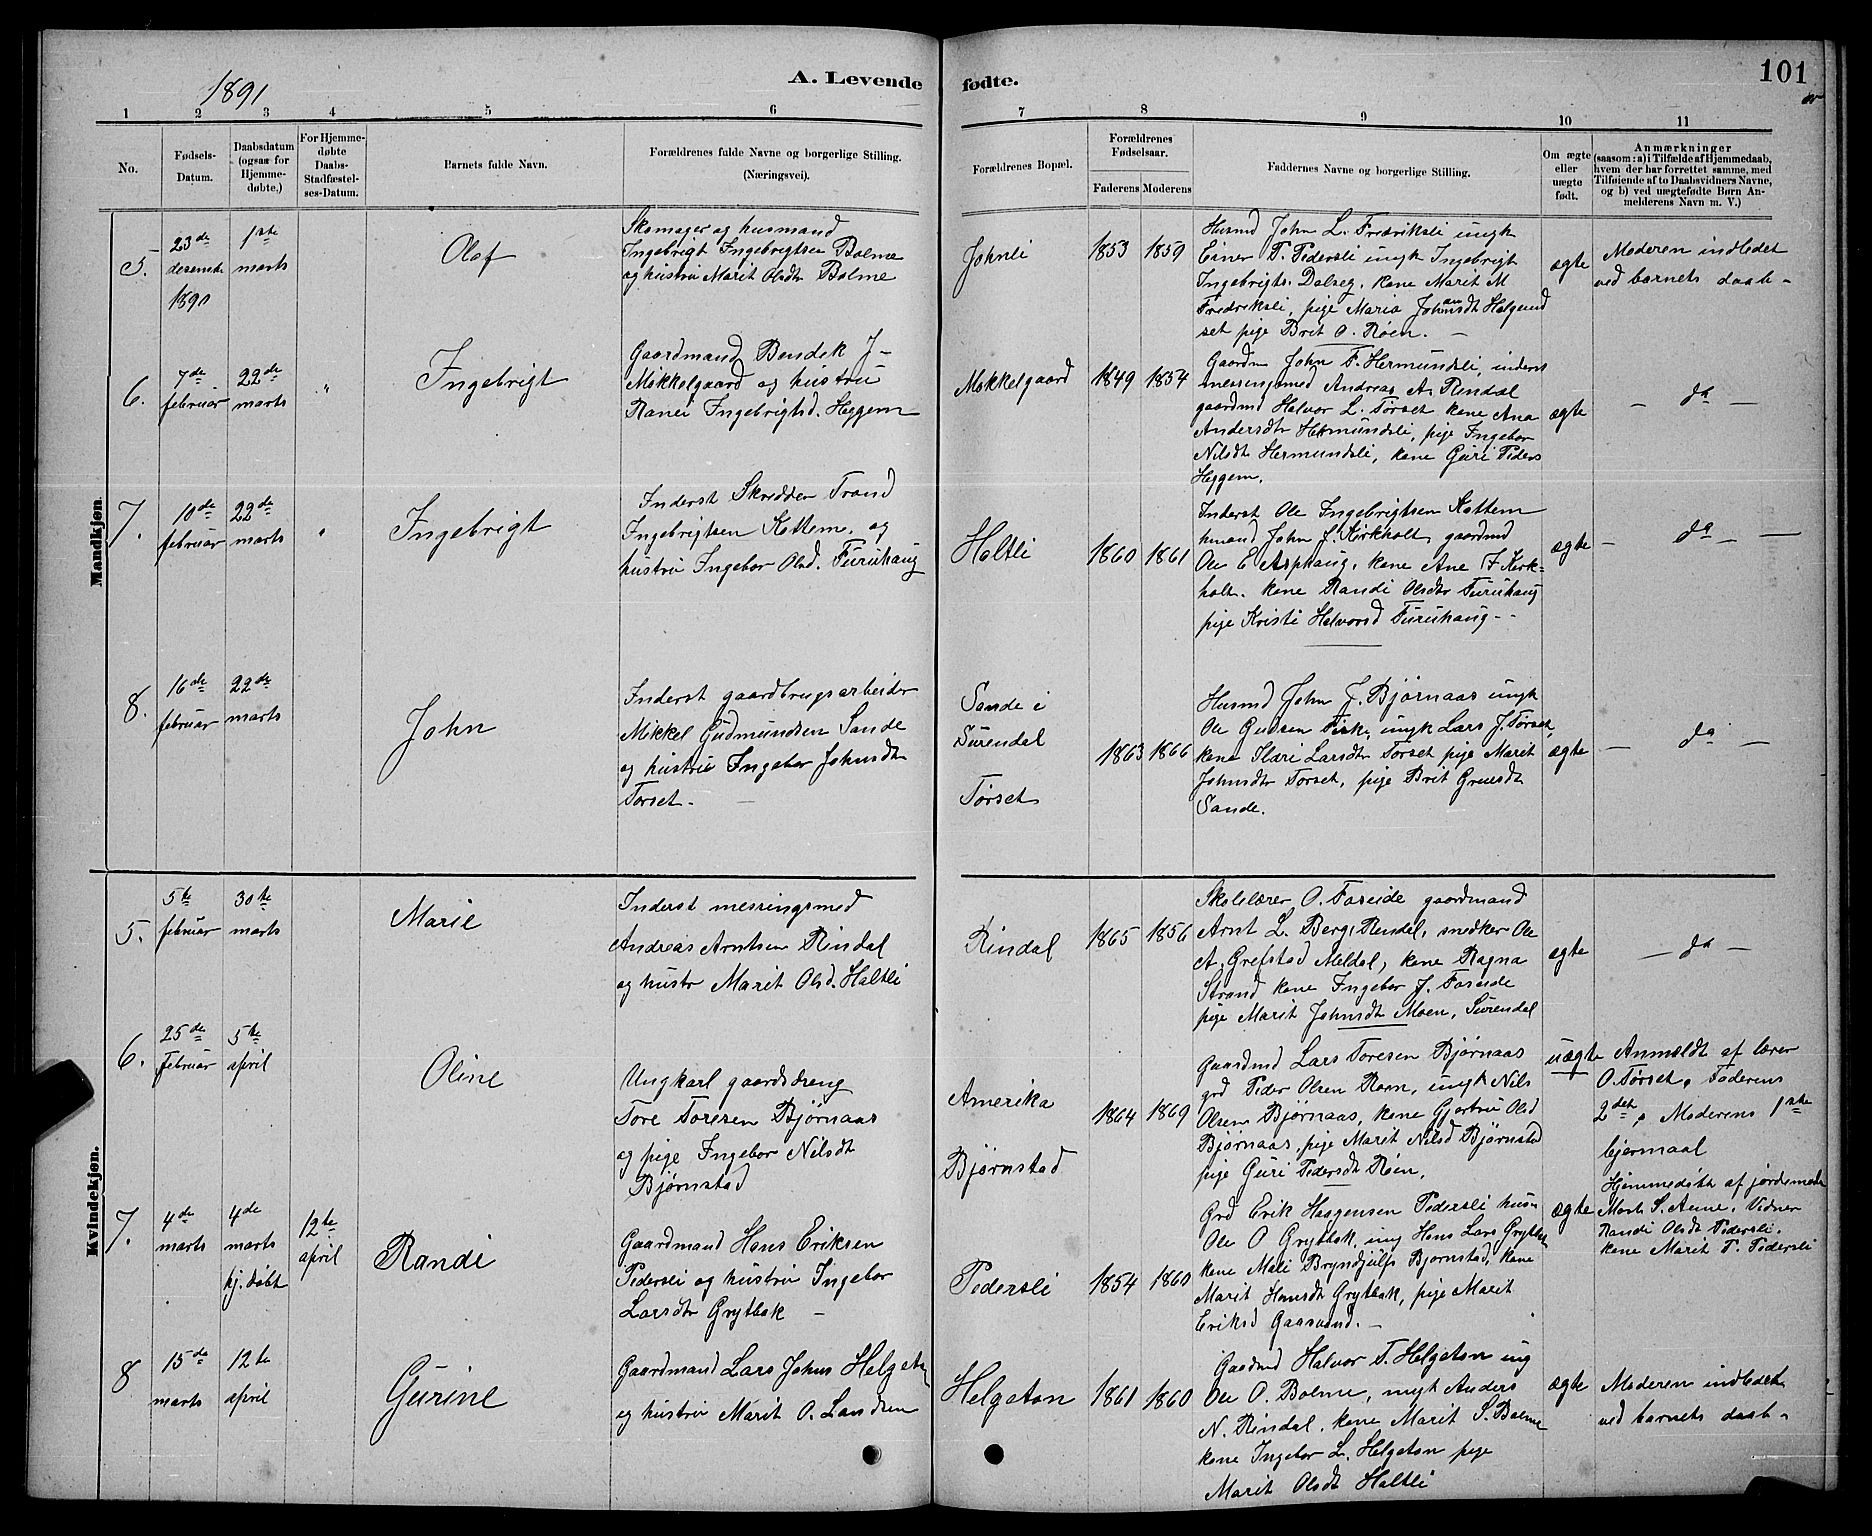 1891
A. Levende fødte.
101
1 2 3 4 5 6 7 8 9 10 11
No.
Fødsels-Datum.
Daabsdatum (ogsaa for Hjemme-døbte.)
For Hjemme-døbte Daabs-Stadfæstel-ses-Datum.
Barnets fulde Navn.
Forældrenes fulde Navne og borgerlige Stilling.
(Næringsvei).
Forældrenes Bopæl.
Forældrenes Fødselsaar.
Faderens Moderens
Faddernes Navne og borgerlige Stilling.
Om ægte eller uægte født.
Anmærkninger
(saasom: a) i Tilfælde af Hjemmedaab,
hvem der har forrettet samme, med
Tilføiende af to Daabsvidners Navne,
og b) ved uægtefødte Børn An-
melderens Navn m. V.)
Mandkjøn.
5.
23de
decembr
1890
1ste
marts
Olaf
Skomager og husmand
Ingebrigt Ingebrigtsen Bolme
og hustru Marit Olsdt Bolme
Johnli
1853 1859
Husmd John L. Fredriksli ungk
Einer T. Pedersli ungk Ingebrigt
Ingebrigts. Dalseg, kone Marit M
Fredriksli, pige Maria Johansdt Halgund
set pige Brit O. Røen. —
ægte
Moderen indledet
ved barnets daab -
6.
7de
februar
22de
marts
"
Ingebrigt
Gaardmand Bendek J -
Mikkelgaard og hustru
Ranei Ingebrigtsd. Heggem
Mikkelgaard
1849 1854
Gaardm John F. Hermundsli, inderst
messingsmed Andreas A. Rindal
gaardmd Halvor L. Tørset kone Ana
Andersdtr Hermundsli, pige Ingebor
Nilsdt Hermundsli, kone Guri Peders
Heggem.
ægte
— da —
7.
10de
februar
22de
marts
"
Ingebrigt
Inderst Skrædder Trond
Ingebrigtsen Kattem, og
hustru Ingebor Olsd. Furuhaug
Haltli
1860 1861
Inderst Ole Ingebrigtsen Kattem
hmand John J. Kirkholt, gaardmd
Ole E Asphaug, kone Ane J Kirk=
holt. kone Randi Olsdtr Furuhaug
pige Kristi Halvorsd Furuhaug - -
ægte
— da — —
8.
16de
februar
22de
marts
John
Inderst gaardbrugsarbeider
Mikkel Gudmundsen Sande
og hustru Ingebor Johnsdtr
Tørset. —
Sande i
Surendal
Tørset
1863 1866
Husmd John J. Bjørnaas ungk
Ole Gudsen Fiske, ungk Lars J. Tørset,
kone Slæri Larsdtr Tørset pige Marit
Johnsdtr Tørset, pige Brit Gruesdt
Sande.
ægte
— da —
Kvindekjøn.
5.
5te
februar
30te
marts
Marie
Inderst messingsmed
Andreas Arntsen Rindal
og hustr Marit Olsd. Haltli
Rindal
1865 1856
Skolelærer O. Foseide gaardmand
Arnt L. Berg, Rindal, snedker Ole
A. Grefstad Meldal, kone Ragna
Strand kone Ingebor J. Foseide
pige Marit Johnsdt Moen, Surendal
ægte
— da —
6.
25de
Februar
5te
april
Oline
Ungkarl gaardsdreng
Tore Toresen Bjørnaas
og pige Ingebor Nilsdt
Bjørnstad
Amerika
Bjørnstad
1864 1869
Gaardmd Lars Toresen Bjørnaas
grd Peder Olsen Røen, ungk Nils
Olsen Bjørnaas, kone Gjertru Olsd
Bjørnaas, pige Marit Nilsd Bjørnstad
pige Guri Pedersdt Røen.
uægte
Anmeldt af lærer
O. Tørset, Faderens
2det, Moderens 1ste
leiermaal
7.
4de
marts
4de
marts
hj. døbt
12te
april
Randi
Gaardmand Hans Eriksen
Pedersli og hustru Ingebor
Larsdtr Grytbak —
Pedersli
1854 1860
Grd Erik Haagensen Pedersli husm
Ole O Grytbak, ung Hans Lars Grytbak
kone Mali Bryndjulfs Bjørnstad, kone
Marit Hansdt Grytbak, pige Marit
Eriksd Gaasvand. —
ægte
Hjemmedøbt af jordemoder
Marit S. Aune, Vidner
Randi Olsdt Pedersli,
kone Marit T. Pedersli
8
15de
marts
12te
april
Gurine
Gaardmand Lars Johns Helgeton
og hustru Marit O. Landsem
Helgeton
1861 1860
Gaardmd Halvor T. Helgeton ung
Ole O. Bolme, ungk Anders
N. Rindal, kone Marit S. Bolme
kone Ingebor L. Helgeton pige
Marit Olsdt Haltli
ægte
Moderen indledet
ved barnets daab -